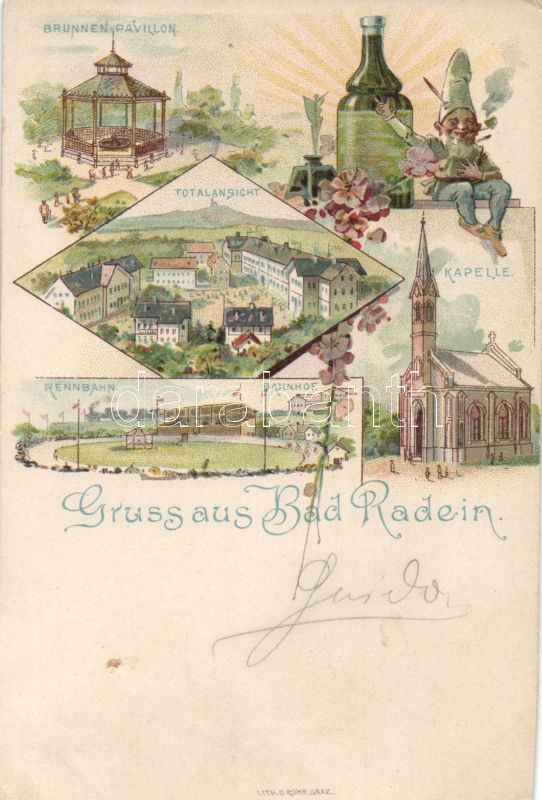 BRUNNEN-PAVILLON.
TOTALANSICHT
KAPELLE.
RENNBAHN
BAHNHOF.
darabanth
Gruss aus Bad Radein.
Guido
LITH. O. ROHR, GRAZ.